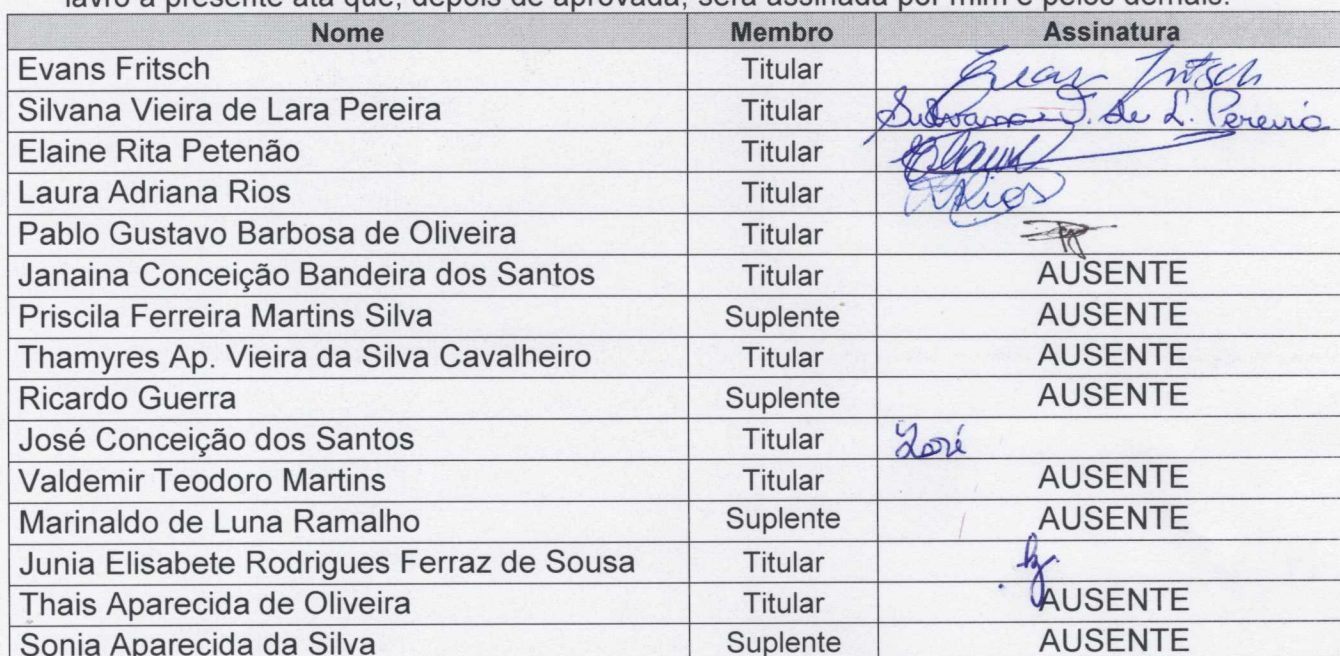 lavro a presente ata que, depois de aprovada, será assinada por mim e pelos demais.
Nome Membro Assinatura
Evans Fritsch Titular Evans Fritsch
Silvana Vieira de Lara Pereira Titular Silvana V. de L. Pereira
Elaine Rita Petenão Titular
Laura Adriana Rios Titular LARios
Pablo Gustavo Barbosa de Oliveira Titular
Janaina Conceição Bandeira dos Santos Titular AUSENTE
Priscila Ferreira Martins Silva Suplente AUSENTE
Thamyres Ap. Vieira da Silva Cavalheiro Titular AUSENTE
Ricardo Guerra Suplente AUSENTE
José Conceição dos Santos Titular José
Valdemir Teodoro Martins Titular AUSENTE
Marinaldo de Luna Ramalho Suplente AUSENTE
Junia Elisabete Rodrigues Ferraz de Sousa Titular
Thais Aparecida de Oliveira Titular AUSENTE
Sonia Aparecida da Silva Suplente AUSENTE